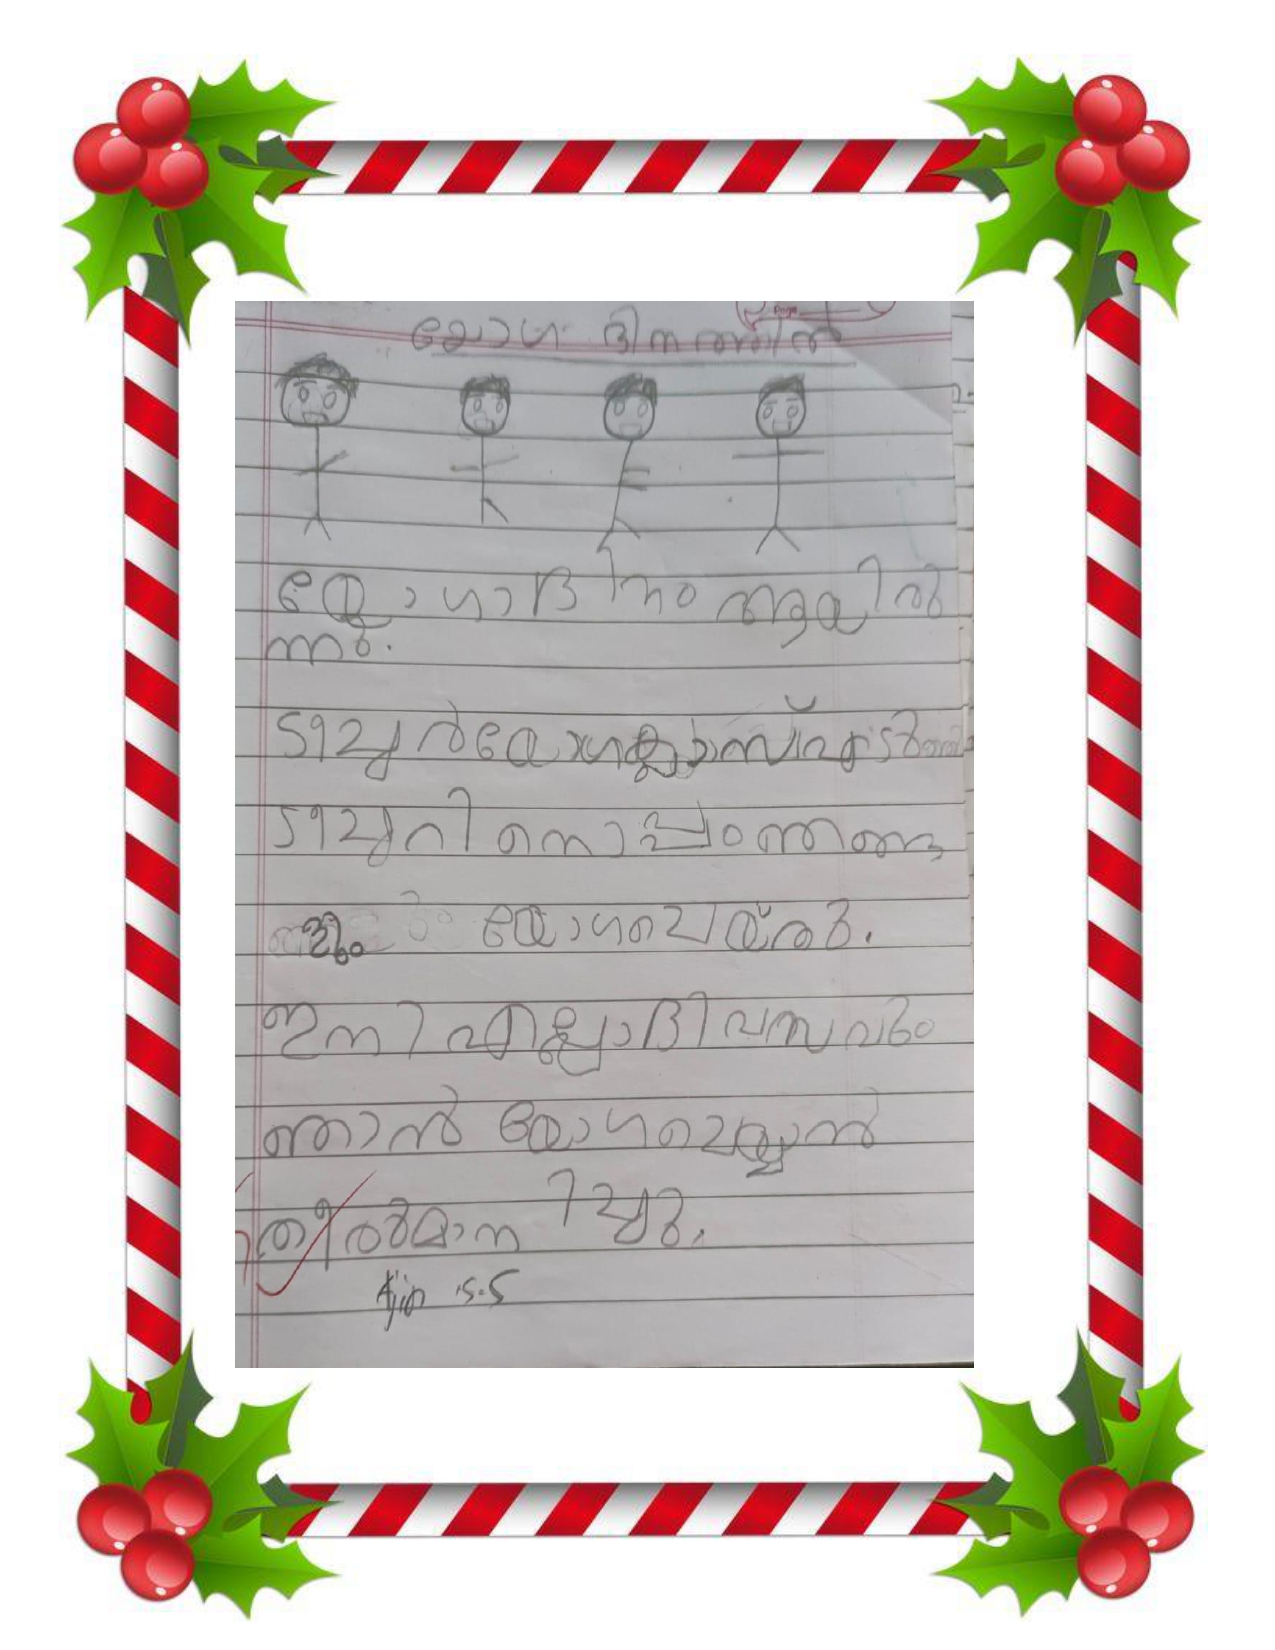 യോഗ ദിനത്തിൽ
യോഗാദിനം ആയിരു
ന്നു.
ടീച്ചർ യോഗക്ലാസ്
ടീച്ചറിനൊപ്പം ഞങ്ങ
ളും യോഗ ചെയ്തു.
ഇനി എല്ലാ ദിവസവും
ഞാൻ യോഗ ചെയ്യാൻ
തീരുമാനിച്ചു.
Ajin S.S